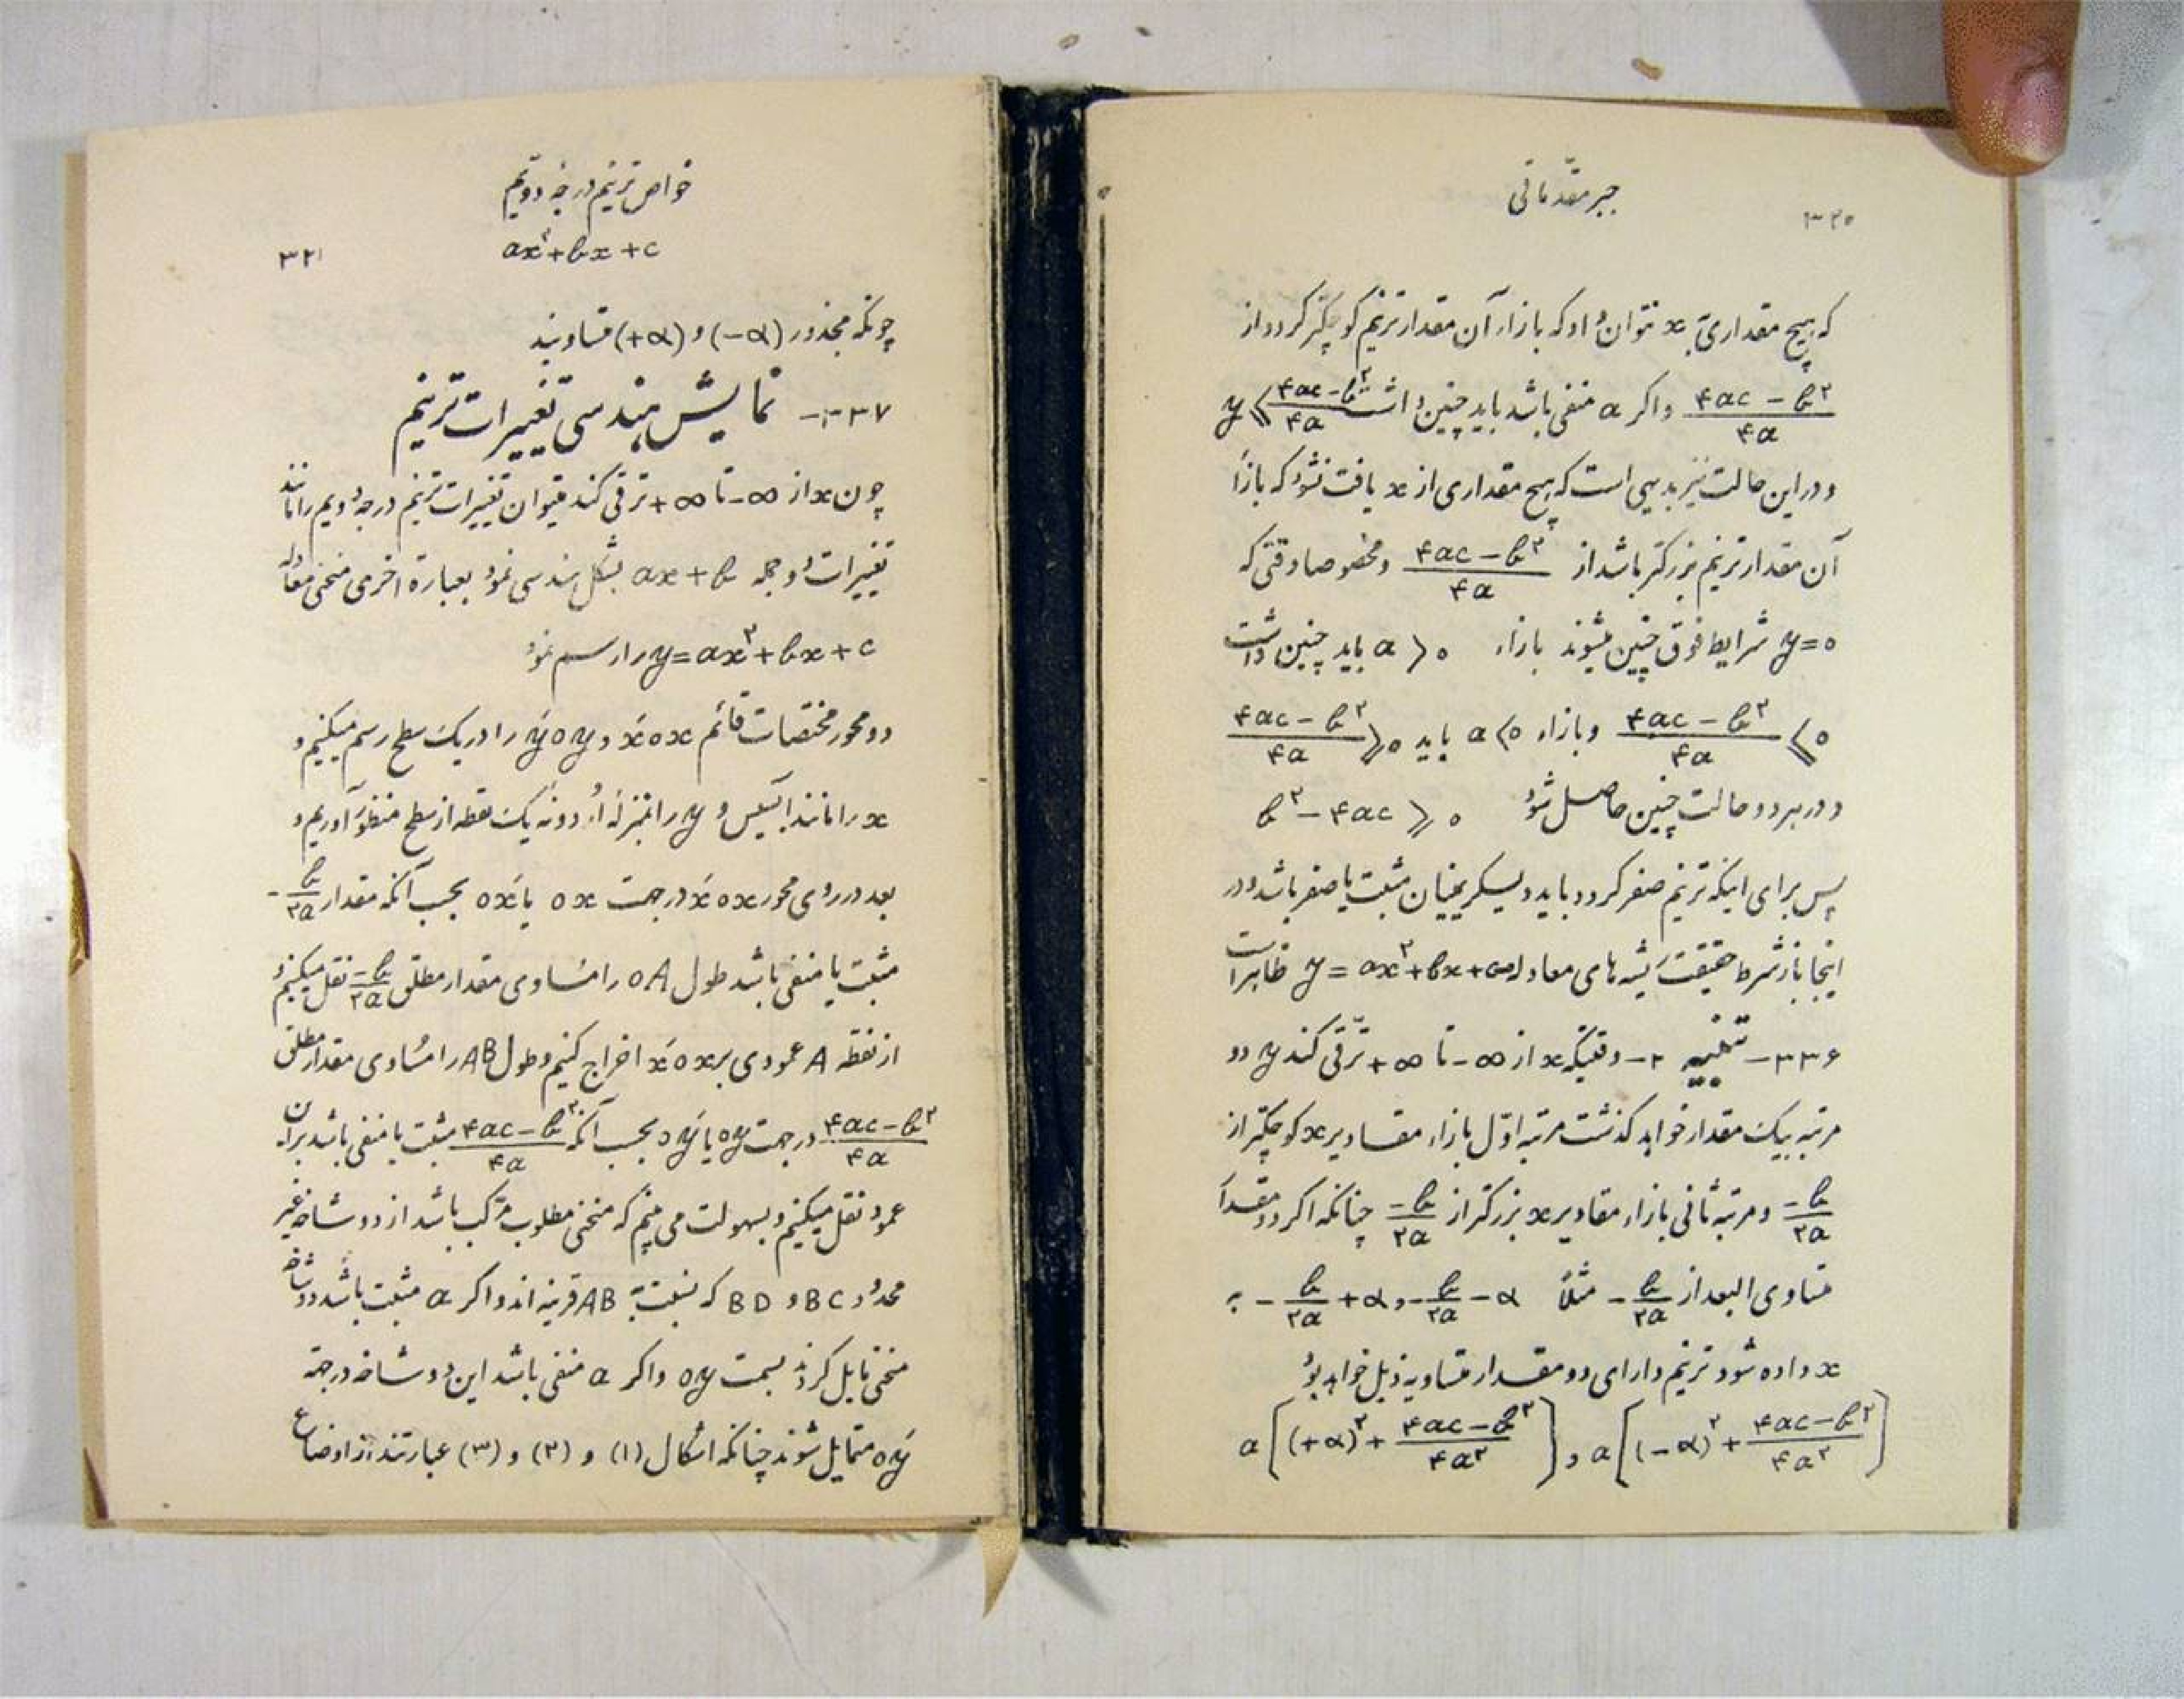 جبر مقدماتی
۳۲۰
که هیچ مقداری به x نتوان داد که بازاء آن مقدار ترینم کوچکتر گردد از
(۴ac − b²)/۴a واگر a منفی باشد باید چنین داشت y ⩽ (۴ac − b²)/۴a
و در این حالت نیز بدیهی است که هیچ مقداری از x یافت نشود که بازاء
آن مقدار ترینم بزرگتر باشد از (۴ac − b²)/۴a ومخصوصا وقتی که
y=۰ شرایط فوق چنین میشوند بازاء a > ۰ باید چنین داشت
(۴ac − b²)/۴a ⩽ ۰ وبازاء a < ۰ باید (۴ac − b²)/۴a ⩾ ۰
و در هر دو حالت چنین حاصل شود b² − ۴ac ⩾ ۰
پس برای اینکه ترینم صفر گردد باید دیسکریمینان مثبت یا صفر باشد و در
اینجا باز شرط حقیقت ریشه های معادله y = ax²+bx+c=۰ ظاهر است
۳۳۶− تنبیه ۲− وقتیکه x از ∞− تا ∞+ ترقی کند y دو
مرتبه بیک مقدار خواهد گذشت مرتبه اوّل بازاء مقادیر x کوچکتر از
−b/۲a و مرتبه ثانی بازاء مقادیر x بزرگتر از −b/۲a چنانکه اگر دو مقدار
متساوی البعد از −b/۲a مثلاً −b/۲a −α و −b/۲a +α به
x داده شود ترینم دارای دو مقدار متساویه ذیل خواهد بود
a[(+α)² + (۴ac−b²)/۴a²] و a[(−α)² + (۴ac−b²)/۴a²]
خواص ترینم درجه دویم
ax²+bx+c
۳۲۱
چونکه مجذور (−α) و (+α) متساویند
۳۳۷− نمایش هندسی تغییرات ترینم
چون x از ∞− تا ∞+ ترقی کند میتوان تغییرات ترینم درجه دویم را مانند
تغییرات دو جمله ax+b بشکل هندسی نمود بعبارة اخری منحنی معادله
y=ax²+bx+c را رسم نمود
دو محور مختصات قائم x′ox و y′oy را در یک سطح رسم میکنیم و
x را مانند ابسیس و y را بمنزله اُردونه یک نقطه از سطح منظور آوریم و
بعد در روی محور x′ox در جهت ox یا ox′ بحسب آنکه مقدار −b/۲a
مثبت یا منفی باشد طول oA را مساوی مقدار مطلق −b/۲a نقل میکنیم و
از نقطه A عمودی بر x′ox اخراج کنیم و طول AB را مساوی مقدار مطلق
(۴ac−b²)/۴a در جهت oy یا oy′ بحسب آنکه (۴ac−b²)/۴a مثبت یا منفی باشد بران
عمود نقل میکنیم و بسهولت می بینیم که منحنی مطلوب مرکب باشد از دو شاخه غیر
محدود BC و BD که نسبت به AB قرینه اند واگر a مثبت باشد دو شاخه
منحنی مایل گردند بسمت oy واگر a منفی باشد این دو شاخه در جهة
oy′ متمایل شوند چنانکه اشکال (۱) و (۲) و (۳) عبارتند از اوضاع